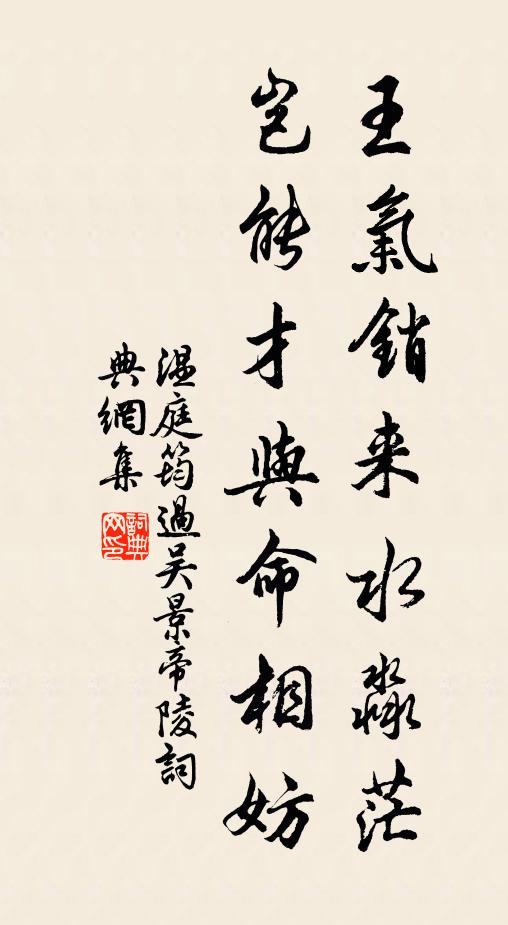 王氣銷来水淼茫
豈能才與命相妨
温庭筠過吴景帝陵詞
典網集
詞典網印